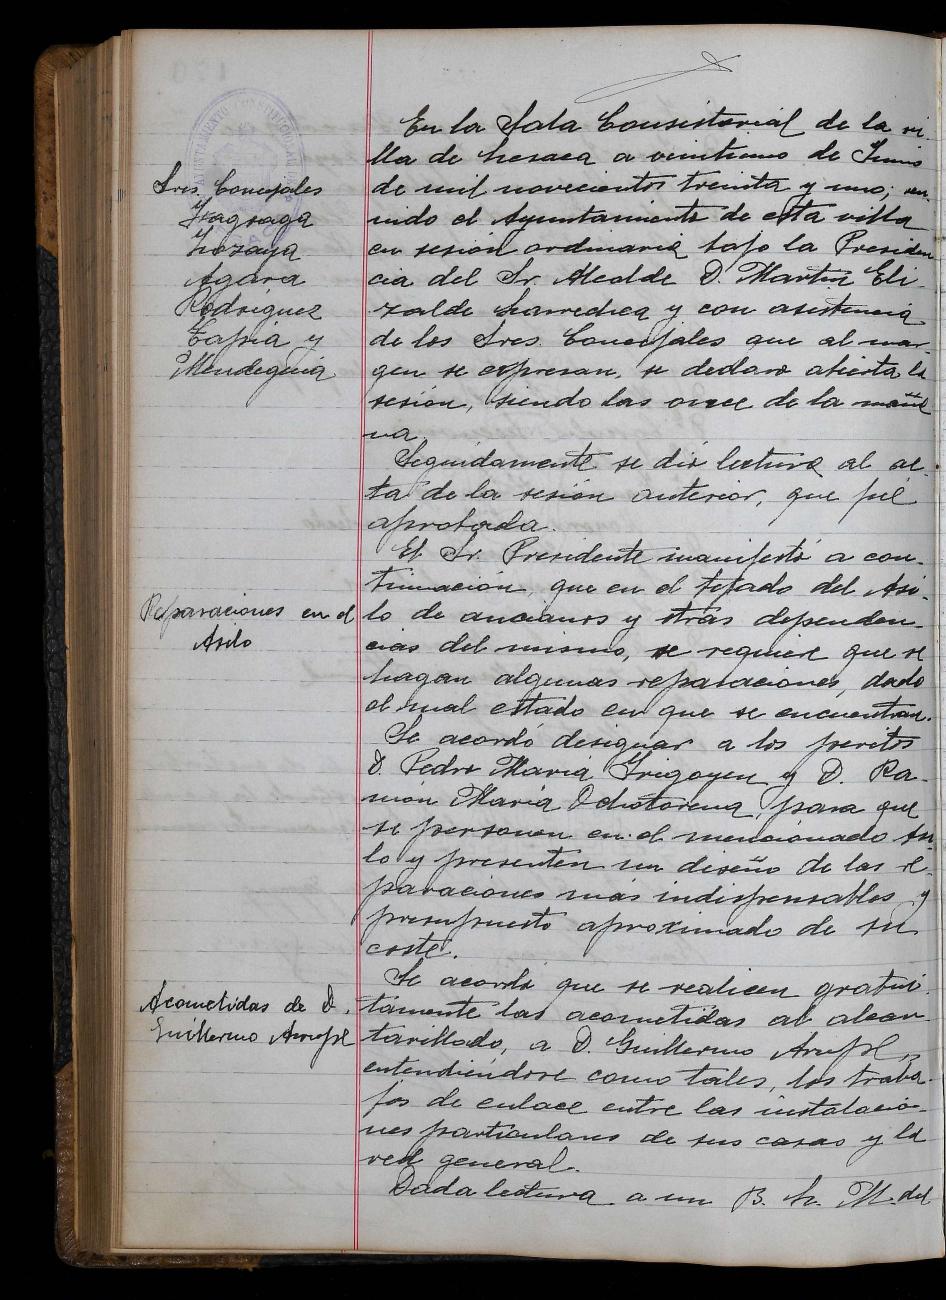 En la Sala Consistorial de la vi-
lla de Lesaca a veintiuno de Junio
de mil novecientos treinta y uno; reu-
nido el Ayuntamiento de esta villa
en sesión ordinaria bajo la Presiden
cia del Sr. Alcalde D. Martín Eli
zalde Iharredica y con asistencia
de los Sres. Concejales que al mar-
gen se expresan, se declaro abierta la
sesión, siendo las once de la maña
na.
Sres. Concejales
Yragzaga
Lozaya
Agara
Rodriguez
Tapia y
Mendeguia
Seguidamente se dió lectura al ac-
ta de la sesión anterior, que fué
aprobada.
El Sr. Presidente manifestó a con-
tinuación que en el tejado del Asi-
lo de ancianos y otras dependen-
cias del mismo, se requiere que se
hagan algunas reparaciones, dado
el mal estado en que se encuentran.
Reparaciones en el
Asilo
Se acordo designar a los peritos
D. Pedro María Irigoyen y D. Ra-
món María Ochotorena para que
se personen en el mencionado Asi-
lo y presenten un diseño de las re-
paraciones más indispensables y
presupuesto aproximado de su
coste.
Acometidas de D.
Guillermo
Se acordó que se realicen gratui-
tamente las acometidas al alcan-
tarillado, a D. Guillermo
entendiendose como tales, los traba-
jos de enlace entre las instalacio-
nes particulares de sus casas y la
red general.
Dada lectura a un B. L. M. del